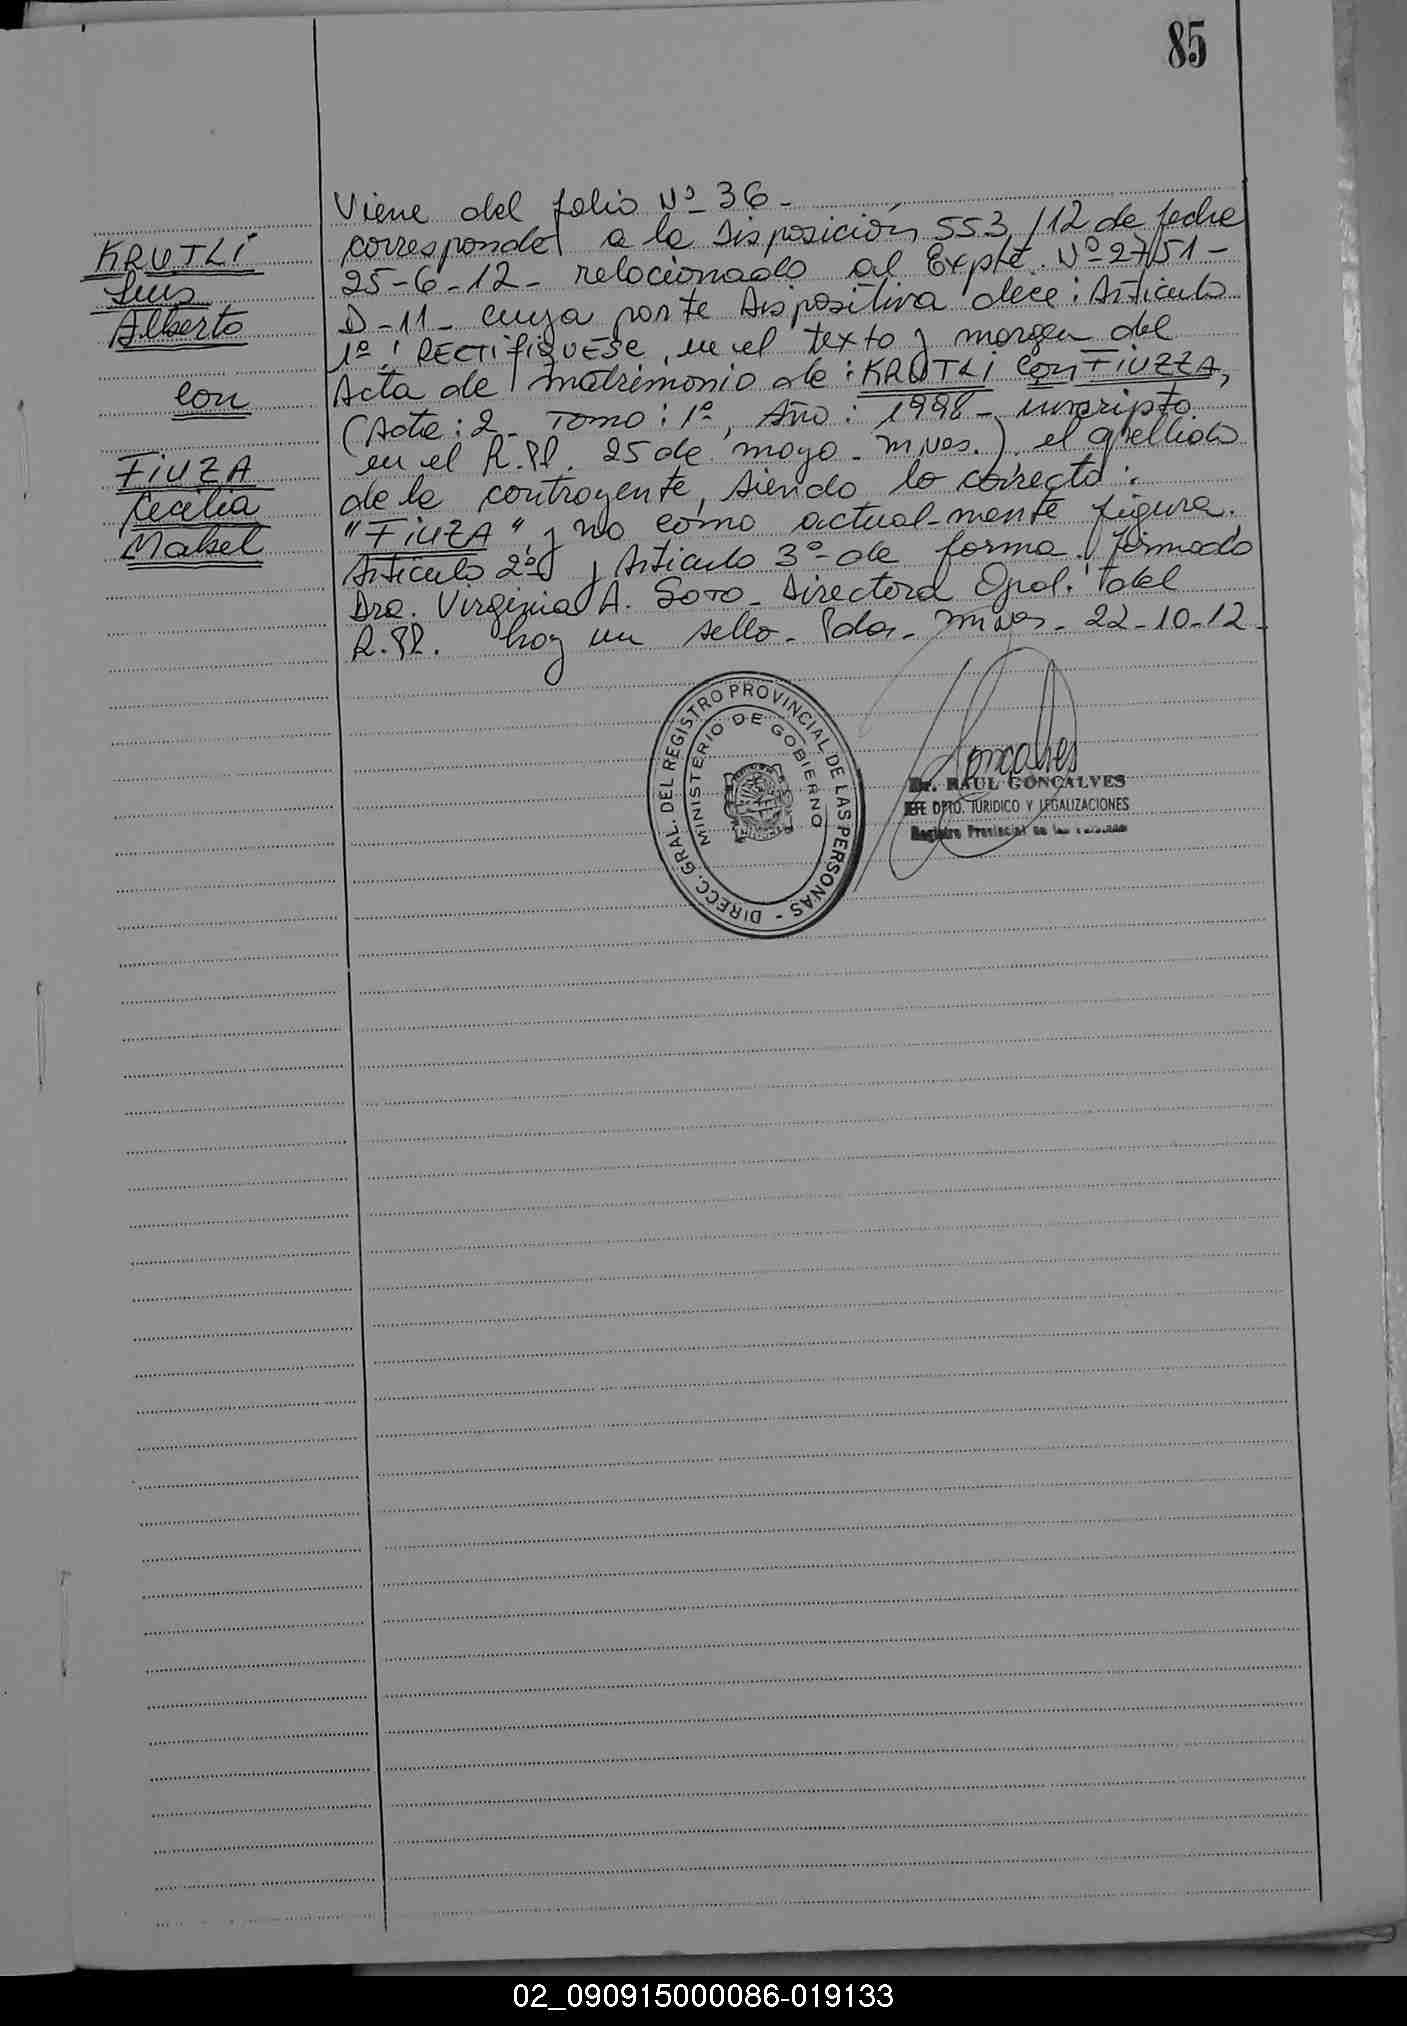 85
Viene del folio Nº 36-
KRUTLI
Luis
Alberto
con
FIUZA
Cecilia
Mabel
corresponde a la Disposición 553/12 de fecha
25-6-12- relacionado al Expte. Nº 2751-
D-11- cuya parte Dispositiva dice: Artículo
1º: RECTIFIQUESE, en el texto y margen del
Acta de matrimonio de: KRUTLI con FIUZZA,
(Acta: 2- Tomo: 1º, Año: 1998- inscripto
en el R.Pl. 25 de mayo- Mnes.) el apellido
de la contrayente, siendo lo correcto:
"FIUZA" y no como actual-mente figura.
Artículo 2º y Artículo 3º de forma. firmado
Dra. Virginia A. Soto- Directora Gral. Del
R.Pl. hay un sello- Pdas- Mnes- 22-10-12-
DIRECC. GRAL. DEL REGISTRO PROVINCIAL DE LAS PERSONAS -
MINISTERIO DE GOBIERNO
Goncalves
Dr. RAUL GONCALVES
JEFE DPTO. JURIDICO Y LEGALIZACIONES
Registro Provincial de las Personas
02_090915000086-019133